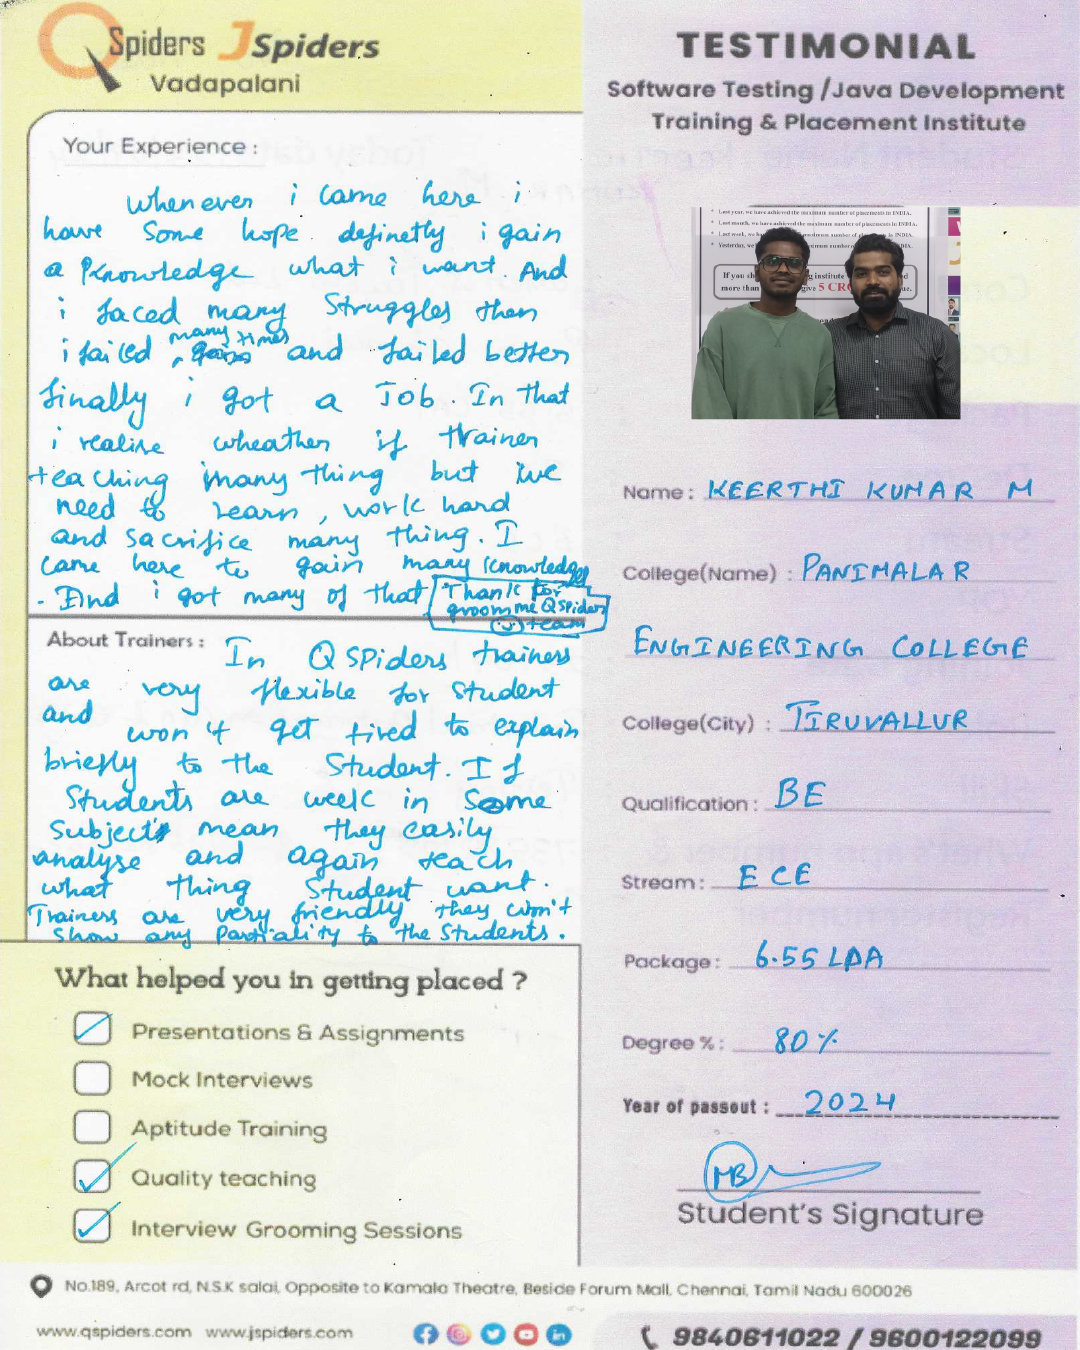 QSpiders JSpiders
Vadapalani
Your Experience :
Whenever i came here i
have some hope definetly i gain
a knowledge what i want. And
i faced many struggles then
many times
i failed , and failed better
finally i got a Job. In that
i realise wheather if trainer
teaching many thing but we
need to learn, work hard
and sacrifice many thing. I
came here to gain many knowledge
. And i got many of that
Thank for
groom me QSpiders
team
About Trainers :
In QSPiders trainers
are very flexible for student
and won't get tired to explain
briefly to the Student. If
Students are week in some
subject's mean they easily
analyse and again teach
what thing Student want.
Trainers are very friendly they won't
show any Partiality to the Students.
What helped you in getting placed ?
Presentations & Assignments
Mock Interviews
Aptitude Training
Quality teaching
Interview Grooming Sessions
TESTIMONIAL
Software Testing /Java Development
Training & Placement Institute
Last year, we have achieved the maximum number of placements in INDIA.
Last month, we have achieved the maximum number of placements in INDIA.
Last week, we
Yesterday, we
If you
more than give 5 CR
Name : KEERTHI KUMAR M
College(Name) : PANIMALAR
ENGINEERING COLLEGE
College(City) : TIRUVALLUR
Qualification : BE
Stream : ECE
Package : 6.55 LPA
Degree % : 80%
Year of passout : 2024
MB
Student's Signature
No.189, Arcot rd, N.S.K salai, Opposite to Kamala Theatre, Beside Forum Mall, Chennai, Tamil Nadu 600026
www.qspiders.com www.jspiders.com
9840611022 / 9600122099